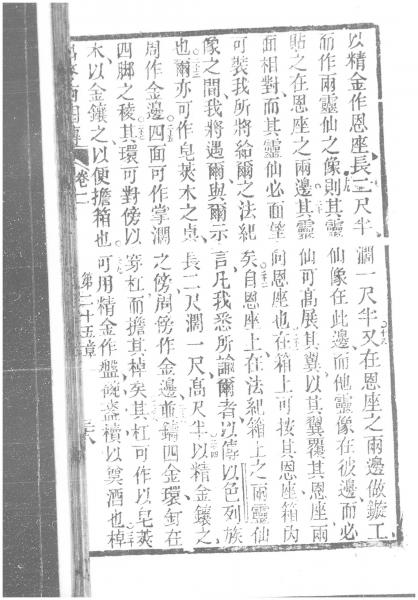 以精金作恩座、長二尺半濶一尺半又在恩座之兩邊做鏇工
而作兩靈仙之像則其靈仙像在此邊、而他靈像在彼邊、而必
貼之在恩座之兩邊其靈仙可高展其翼、以其翼覆其恩座、兩
面相對而其靈仙必面望向恩座也在箱上可按其恩座箱內
可裝我所將給爾之法紀矣、自恩座上在法紀箱上之兩靈仙
像之間我將遇爾與爾示言、凡我悉所諭爾者以傳以色列族
也爾亦可作皂莢木之桌、長二尺濶一尺、高尺半以精金鑲之、
周作金邊四面可作掌濶之傍、周傍作金邊、並鑄四金環釘在
四脚之稜其環可對傍以穿杠而擔其棹矣其杠可作以皂莢
木、以金鑲之以便擔箱也可用精金作盤碗盃櫝以奠酒也棹
卷二 第二十五章